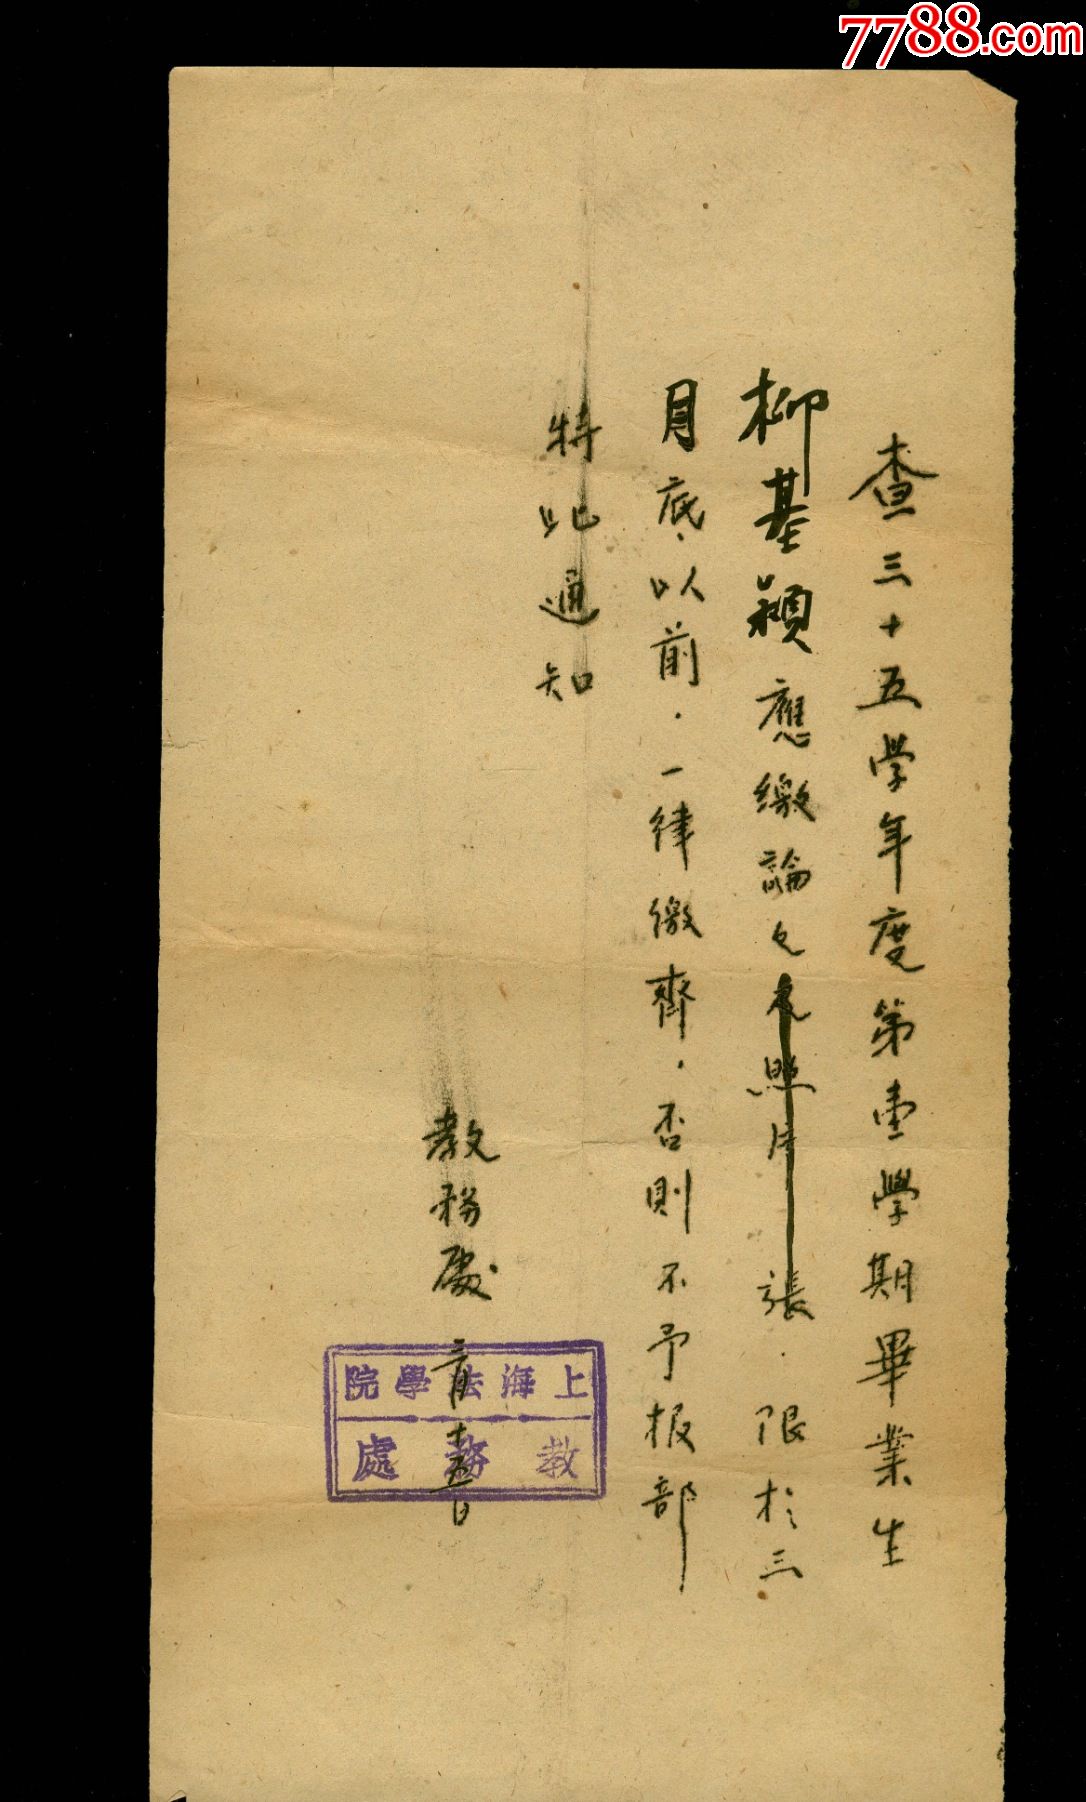 7788.com
查三十五学年度第壹學期畢業生
柳基穎應繳論文及照片張．限於三
月底以前．一律缴齊．否則不予报部
特此通知
教務處 三月十五日
上海法學院
教務處